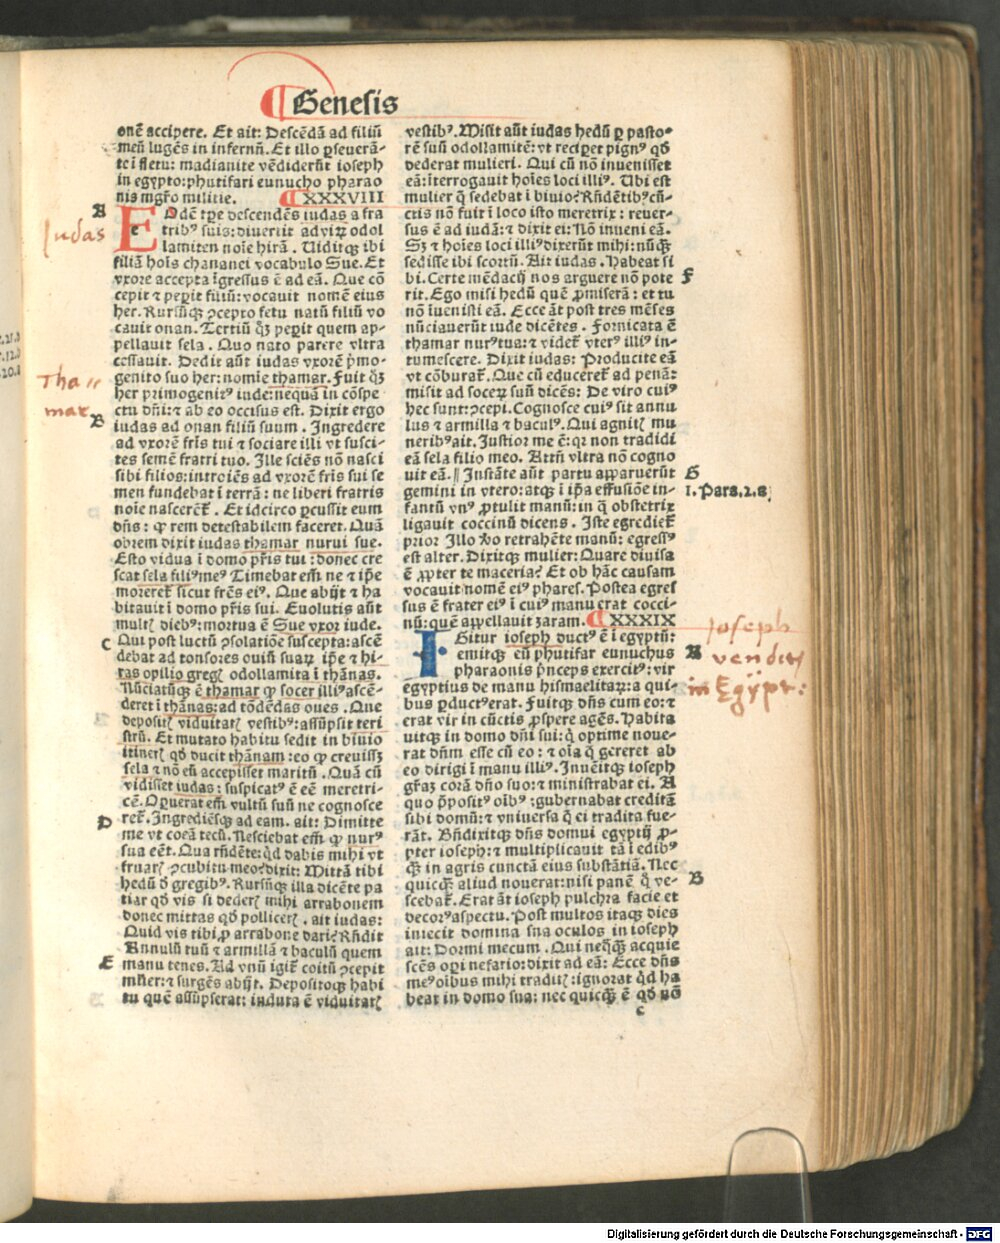 Genesis
onē accipere. Et ait: Descēdā ad filiū
meū lugēs in infernū. Et illo ꝑseuerā-
te ī fletu: madianite vēdiderūt ioseph
in egypto: phutifari eunucho pharao
nis mgro militie. XXXVIII
A
Iudas
EOdē tꝑe descendēs iudas a fra
tribꝰ suis: diuertit ad virū odol
lamiten noīe hirā. Uiditqꝫ ibi
filiā hoīs chananei vocabulo Sue. Et
vxore accepta īgressus ē ad eā. Que cō
cepit ⁊ peꝑit filiū: vocauit nomē eius
her. Rursūqꝫ ꝯcepto fetu natū filiū vo
cauit onan. Tertiū qꝫ peꝑit quem ap-
pellauit sela. Quo nato parere vltra
cessauit. Dedit aūt iudas vxorē pmo-
genito suo her: nomīe thamar. Fuit qꝫ
Tha〃
mar
her primogenitꝰ iude: nequā in cōspe
ctu dñi: ⁊ ab eo occisus est. Dixit ergo
B
iudas ad onan filiū suum. Ingredere
ad vxorē frīs tui ⁊ sociare illi vt susci-
tes semē fratri tuo. Ille sciēs nō nasci
sibi filios: introiēs ad vxorē frīs sui se
men fundebat ī terrā: ne liberi fratris
noīe nascerēt. Et idcirco ꝑcussit eum
dñs: ꝙ rem detestabilem faceret. Quā
obrem dixit iudas thamar nurui sue.
Esto vidua ī domo prīs tui: donec cre
scat sela filiꝰ meꝰ Timebat em̄ ne ⁊ ip̄e
moreret sicut frēs eiꝰ. Que abijt ⁊ ha
bitauit ī domo prīs sui. Euolutis aūt
multꝭ diebꝰ: mortua ē Sue vxor iude.
C
Qui post luctū ꝯsolatiōe suscepta: ascē
debat ad tonsores ouiū suaꝝ ip̄e ⁊ hi-
ras opilio gregꝭ odollamita ī thānas.
Nūciatūqꝫ ē thamar ꝙ socer illiꝰ ascē-
deret ī thānas: ad tōdēdas oues. Que
depositꝭ viduitatꝭ vestibꝰ: assūpsit teri
strū. Et mutato habitu sedit in biuio
itinerꝭ qđ ducit thānam: eo ꝙ creuiss3
sela ⁊ nō eū accepisset maritū. Quā cū
vidisset iudas: suspicatꝰ ē eē meretri-
cē. Oꝑuerat em̄ vultū suū ne cognosce
D
ret. Ingrediēsqꝫ ad eam. ait: Dimitte
me vt coeā tecū. Nesciebat em̄ ꝙ nurꝰ
sua eēt. Qua rñdēte: qd dabis mihi vt
fruarꝭ ꝯcubitu meo? dixit: Mittā tibi
hedū đ gregibꝰ. Rursūqꝫ illa dicēte pa
tiar qđ vis si dederꝭ mihi arrabonem
donec mittas qđ pollicerꝭ. ait iudas:
Quid vis tibi ꝓ arrabone dari? Rñdit
Annulū tuū ⁊ armillā ⁊ baculū quem
E
manu tenes. Ad vnū igit coitū ꝯcepit
mlier: ⁊ surgēs abijt. Depositoqꝫ habi
tu quē assūpserat: induta ē viduitatꝭ
vestibꝰ. Misit aūt iudas hedū ꝑ pasto-
rē suū odollamitē: vt reciꝑet pignꝰ qđ
dederat mulieri. Qui cū nō inuenisset
eā: īterrogauit hoīes loci illiꝰ. Ubi est
mulier q̄ sedebat ī biuio? Rñdētibꝰ cū-
ctis nō fuit ī loco isto meretrix: reuer-
sus ē ad iudā: ⁊ dixit ei: Nō inueni eā.
Sꝫ ⁊ hoīes loci illiꝰ dixerūt mihi: nūqꝫ
sedisse ibi scortū. Ait iudas. Habeat si
F
bi. Certe mēdacij nos arguere nō pote
rit. Ego misi hedū quē ꝓmiserā: et tu
nō īuenisti eā. Ecce āt post tres mēses
nūciauerūt iude dicētes. Fornicata ē
thamar nurꝰ tua: ⁊ videt vterꝰ illiꝰ in-
tumescere. Dixit iudas: Producite eā
vt cōburat. Que cū educeret ad penā:
misit ad soceꝝ suū dicēs: De viro cuiꝰ
hec sunt: ꝯcepi. Cognosce cuiꝰ sit annu
lus ⁊ armilla ⁊ baculꝰ. Qui agnitꝭ mu
neribꝰ ait. Justior me ē: qr non tradidi
eā sela filio meo. Attñ vltra nō cogno
uit eā. Instāte aūt partu aꝑparuerūt
G
gemini in vtero: atqꝫ ī ip̄a effusiōe in-
1. Pars. 2. a
fantū vnꝰ ꝓtulit manū: in q̄ obstetrix
ligauit coccinū dicens. Iste egrediet
prior Illo ꝟo retrahēte manū: egressꝰ
est alter. Dixitqꝫ mulier: Quare diuisa
ē ꝓpter te maceria? Et ob hāc causam
vocauit nomē eiꝰ phares. Postea egres
sus ē frater eiꝰ ī cuiꝰ manu erat cocci-
nū: quē aꝑpellauit zaram. XXXIX
IGitur ioseph ductꝰ ē ī egyptū:
A
emitqꝫ eū phutifar eunuchus
pharaonis pnceps exercitꝰ: vir
ioseph
venditꝭ
in Egÿpt:
egyptius de manu hismaelitaꝝ: a qui-
bus ꝑductꝰ erat. Fuitqꝫ dñs cum eo: ⁊
erat vir in cūctis ꝓspere agēs. Habita
uitqꝫ in domo dñi sui: q̄ optime noue-
rat dñm esse cū eo: ⁊ oīa q̄ gereret ab
eo dirigi ī manu illiꝰ. Inuēitqꝫ ioseph
grāꝫ corā dño suo: ⁊ ministrabat ei. A
quo pposītꝰ oībꝰ: gubernabat creditā
sibi domū: ⁊ vniuersa q̄ ei tradita fue-
rāt. Bñdixitqꝫ dñs domui egyptij ꝓ-
pter ioseph: ⁊ multiplicauit tā ī edibꝰ
qꝫ in agris cunctā eius substātiā. Nec
B
quicqꝫ aliud nouerat: nisi panē q̄ ve-
scebat. Erat āt ioseph pulchra facie et
decorꝰ aspectu. Post multos itaqꝫ dies
iniecit domina sua oculos in ioseph
ait: Dormi mecum. Qui neqꝫqꝫ acquie
scēs oꝑi nefario: dixit ad eā: Ecce dñs
meꝰ oībus mihi traditꝭ: ignorat qđ ha
beat in domo sua: nec quicqꝫ ē qđ nō
c
Digitalisierung gefördert durch die Deutsche Forschungsgemeinschaft - DFG